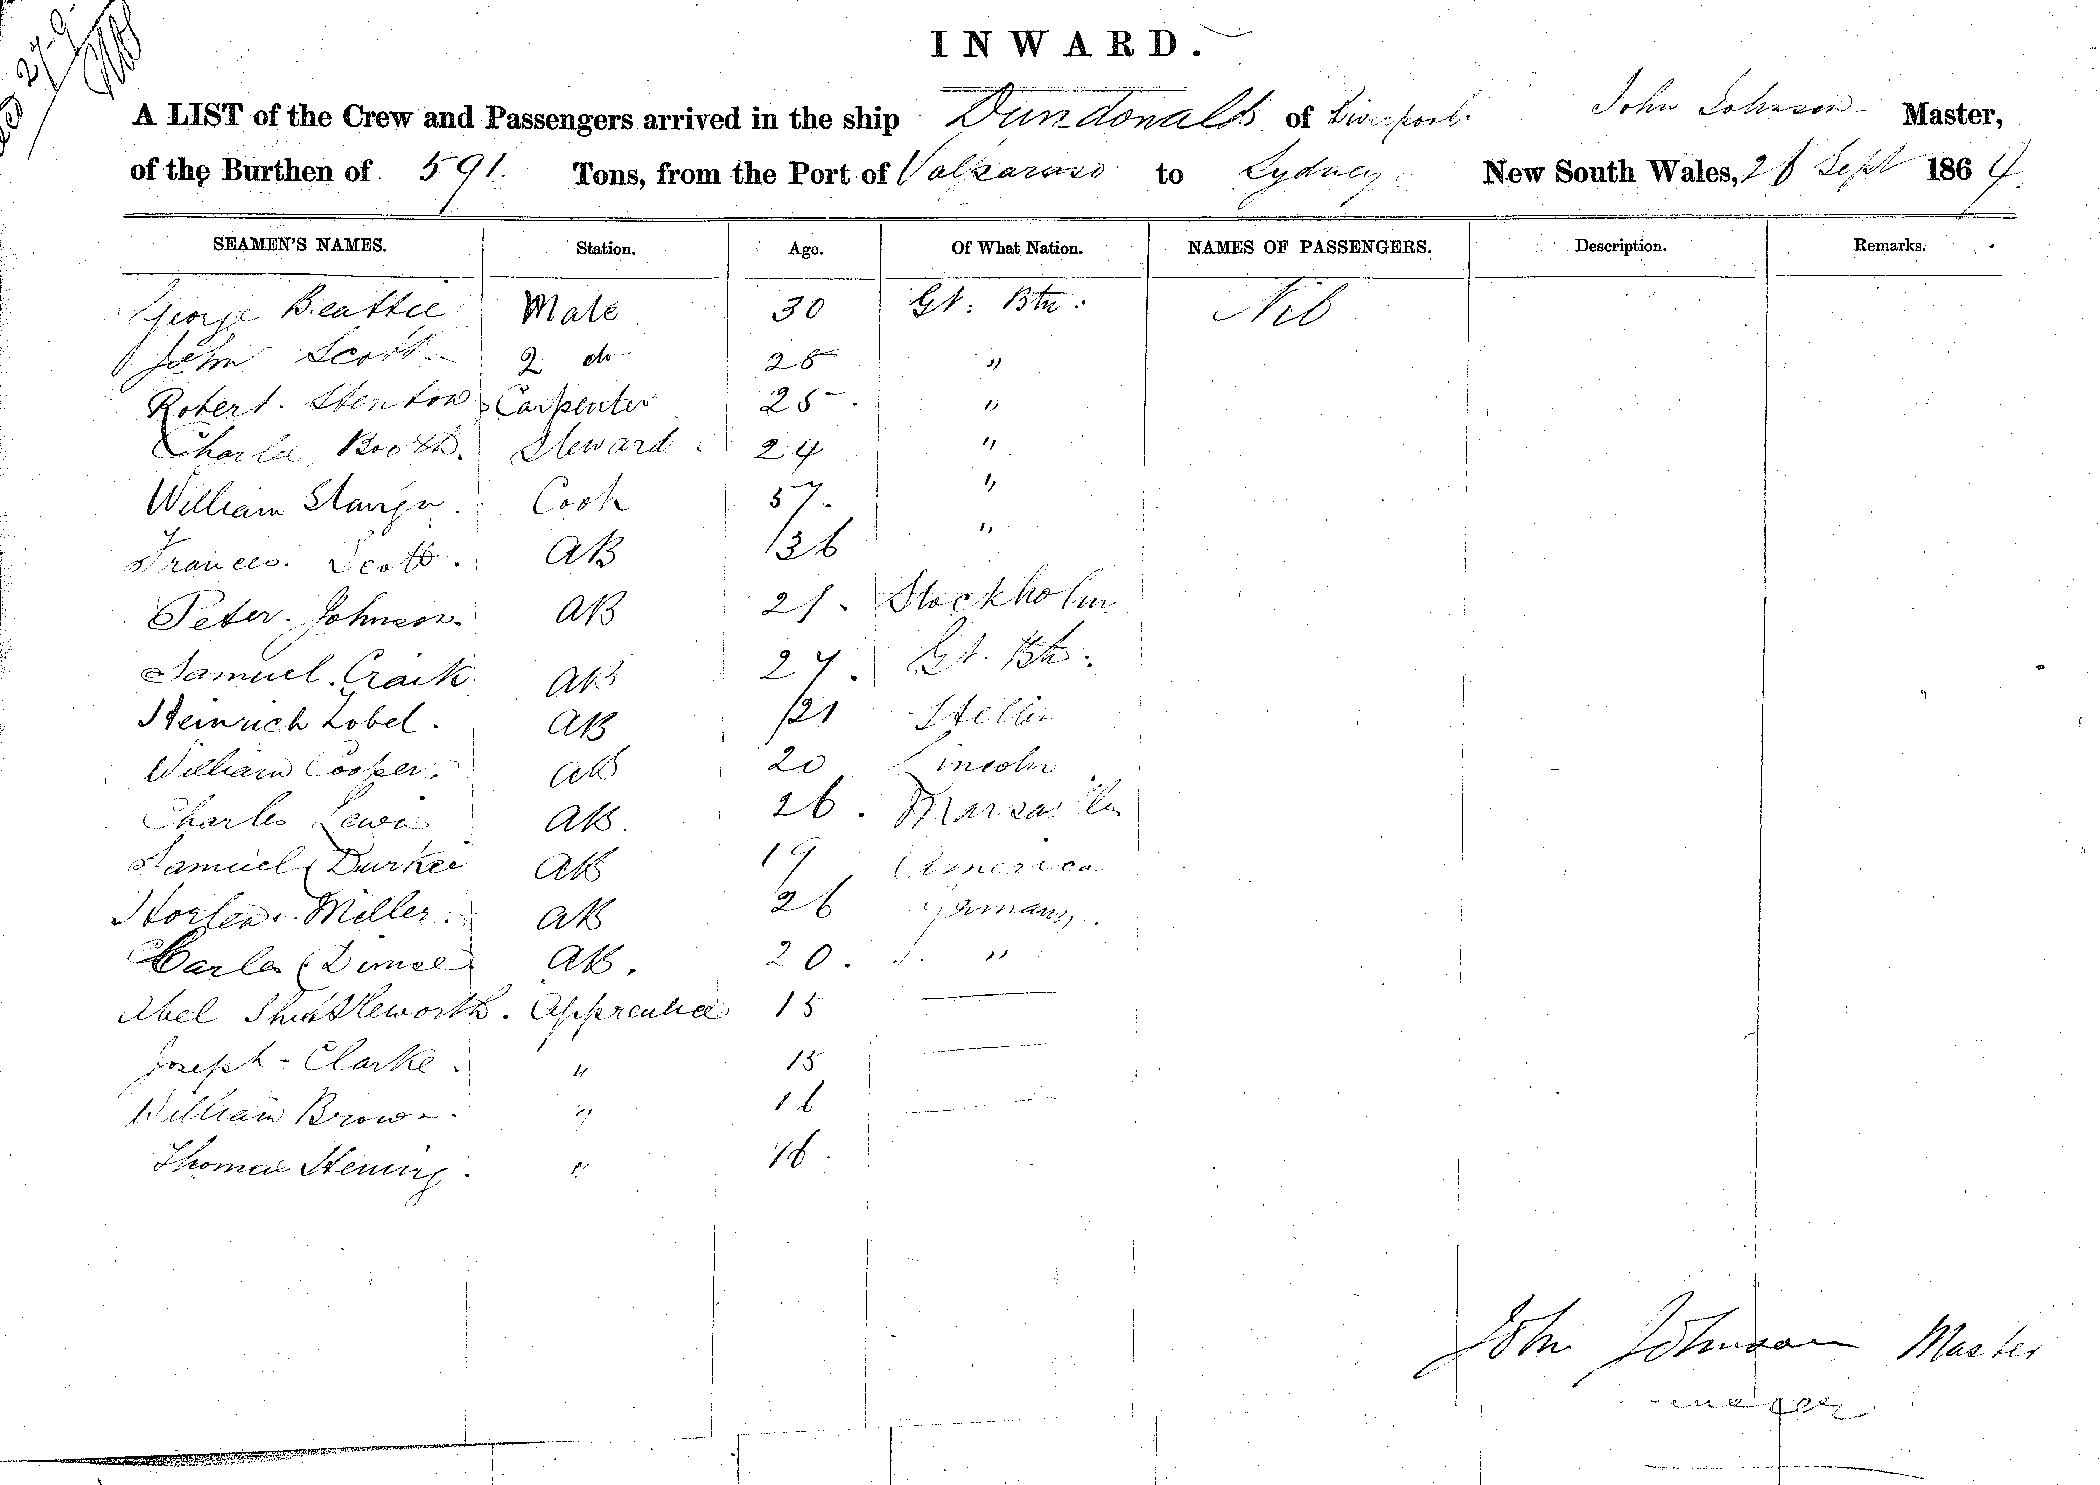 27-9
INWARD.
A LIST of the Crew and Passengers arrived in the ship Dundonald of Liverpool. John Johnson Master,
of the Burthen of 591. Tons, from the Port of Valparaiso to Sydney New South Wales, 26 Sept 1864.
SEAMEN'S NAMES. Station. Age. Of What Nation. NAMES OF PASSENGERS. Description. Remarks.
George Beattie Mate 30 Gt. Btn: Nil
John Scott 2 do 28 "
Robert Stenton Carpenter 25 "
Charle Booth. Steward 24 "
William Cook 57. "
Frances Scott. AB 36 "
Peter Johnson. AB 21. Stockholm
Samuel Craik AB 27. Gt. Btn:
Heinrich Zobel. AB 21 Stettin
William Cooper. AB 20 Lincoln
Charles Lewis AB. 26.
Samuel Durkee AB 19 America
Miller. AB 26 Germany.
Carles AB. 20. "
Abel Shuttleworth. Apprentice 15 —
Joseph - Clarke. " 15 —
William Brown. " 16 —
Thomas Hening. " 16.
John Johnson Master